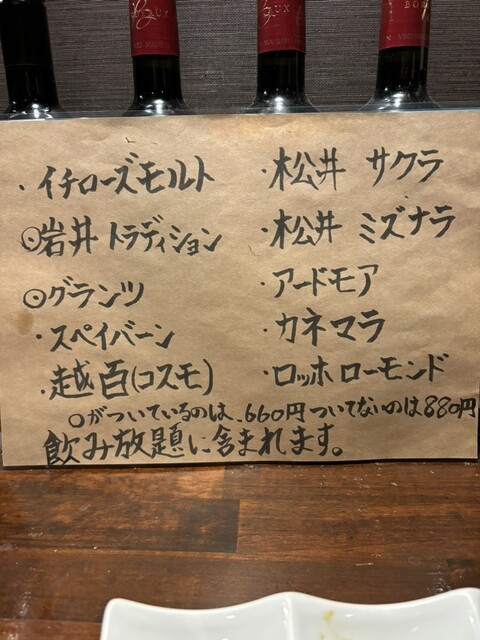 ・イチローズモルト
◎岩井トラディション
◎グランツ
・スペイバーン
・越百(コスモ)
・松井 サクラ
・松井 ミズナラ
・アードモア
・カネマラ
・ロッホローモンド
○がついているのは、660円ついてないのは880円
飲み放題に含まれます。